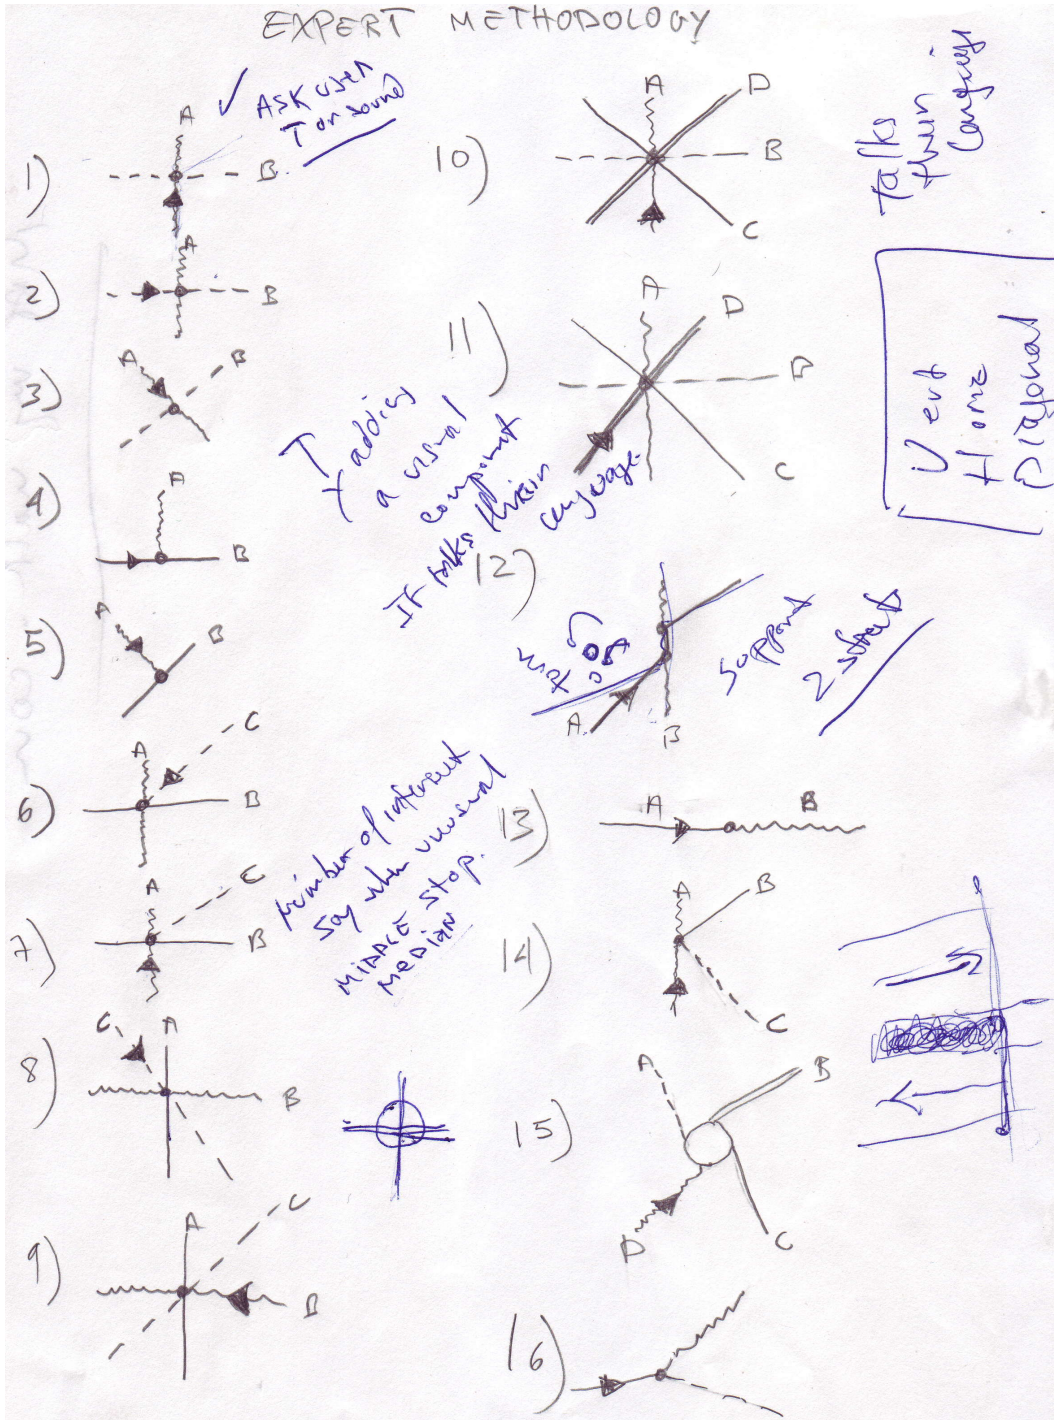 EXPERT METHODOLOGY
1)
A
B
✓ ASK user
T or sound
2)
A
B
3)
A
B
4)
A
B
5)
A
B
6)
A
B
C
7)
A
B
C
8)
C
A
B
9)
A
C
B
adding
a visual
component
If talks their
language
Number of intersect
Say when unusual
MIDDLE Stop.
MEDIAN
10)
A
D
B
C
11)
A
D
B
C
12)
A
B
support
2 streets
13)
A
B
14)
A
B
C
15)
A
B
C
D
16)
Talks
their
language
Vert
Horiz
Diagonal